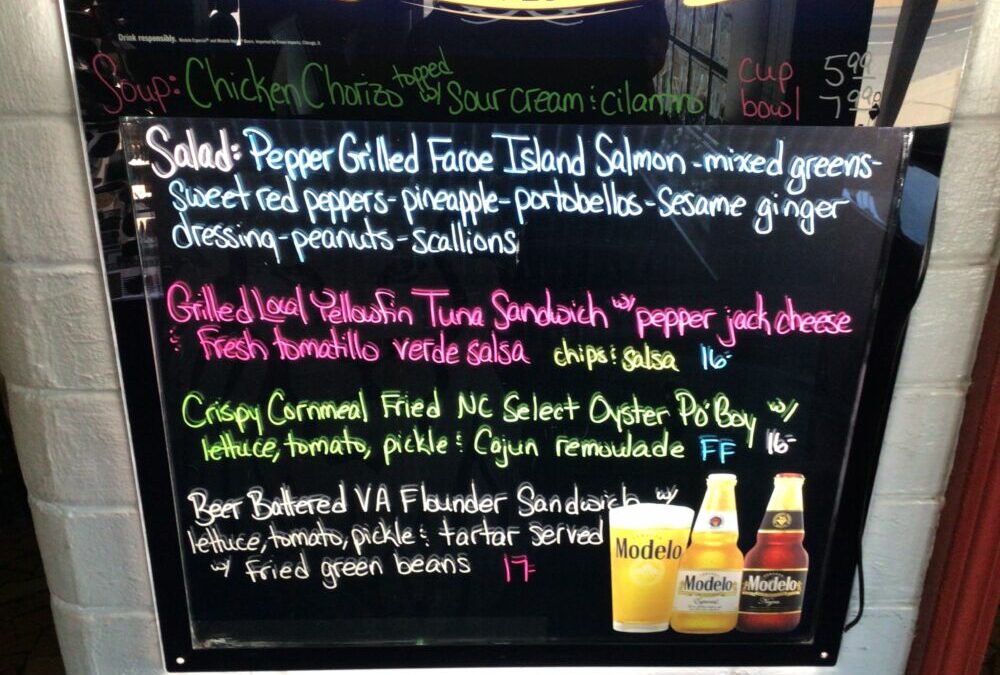 Drink responsibly.
Soup: Chicken Chorizo topped w/ Sour cream & cilantro cup 5.99
bowl 7.99
Salad: Pepper Grilled Faroe Island Salmon - mixed greens -
sweet red peppers - pineapple - portobellos - Sesame ginger
dressing - peanuts - scallions
Grilled Local Yellowfin Tuna Sandwich w/ pepper jack cheese
& Fresh tomatillo verde salsa chips & salsa 16-
Crispy Cornmeal Fried NC Select Oyster Po' Boy w/
lettuce, tomato, pickle & Cajun remoulade FF 16-
Beer Battered VA Flounder Sandwich w/
lettuce, tomato, pickle & tartar served
w/ Fried green beans 17-
Modelo
Modelo
Especial
Modelo
Negra